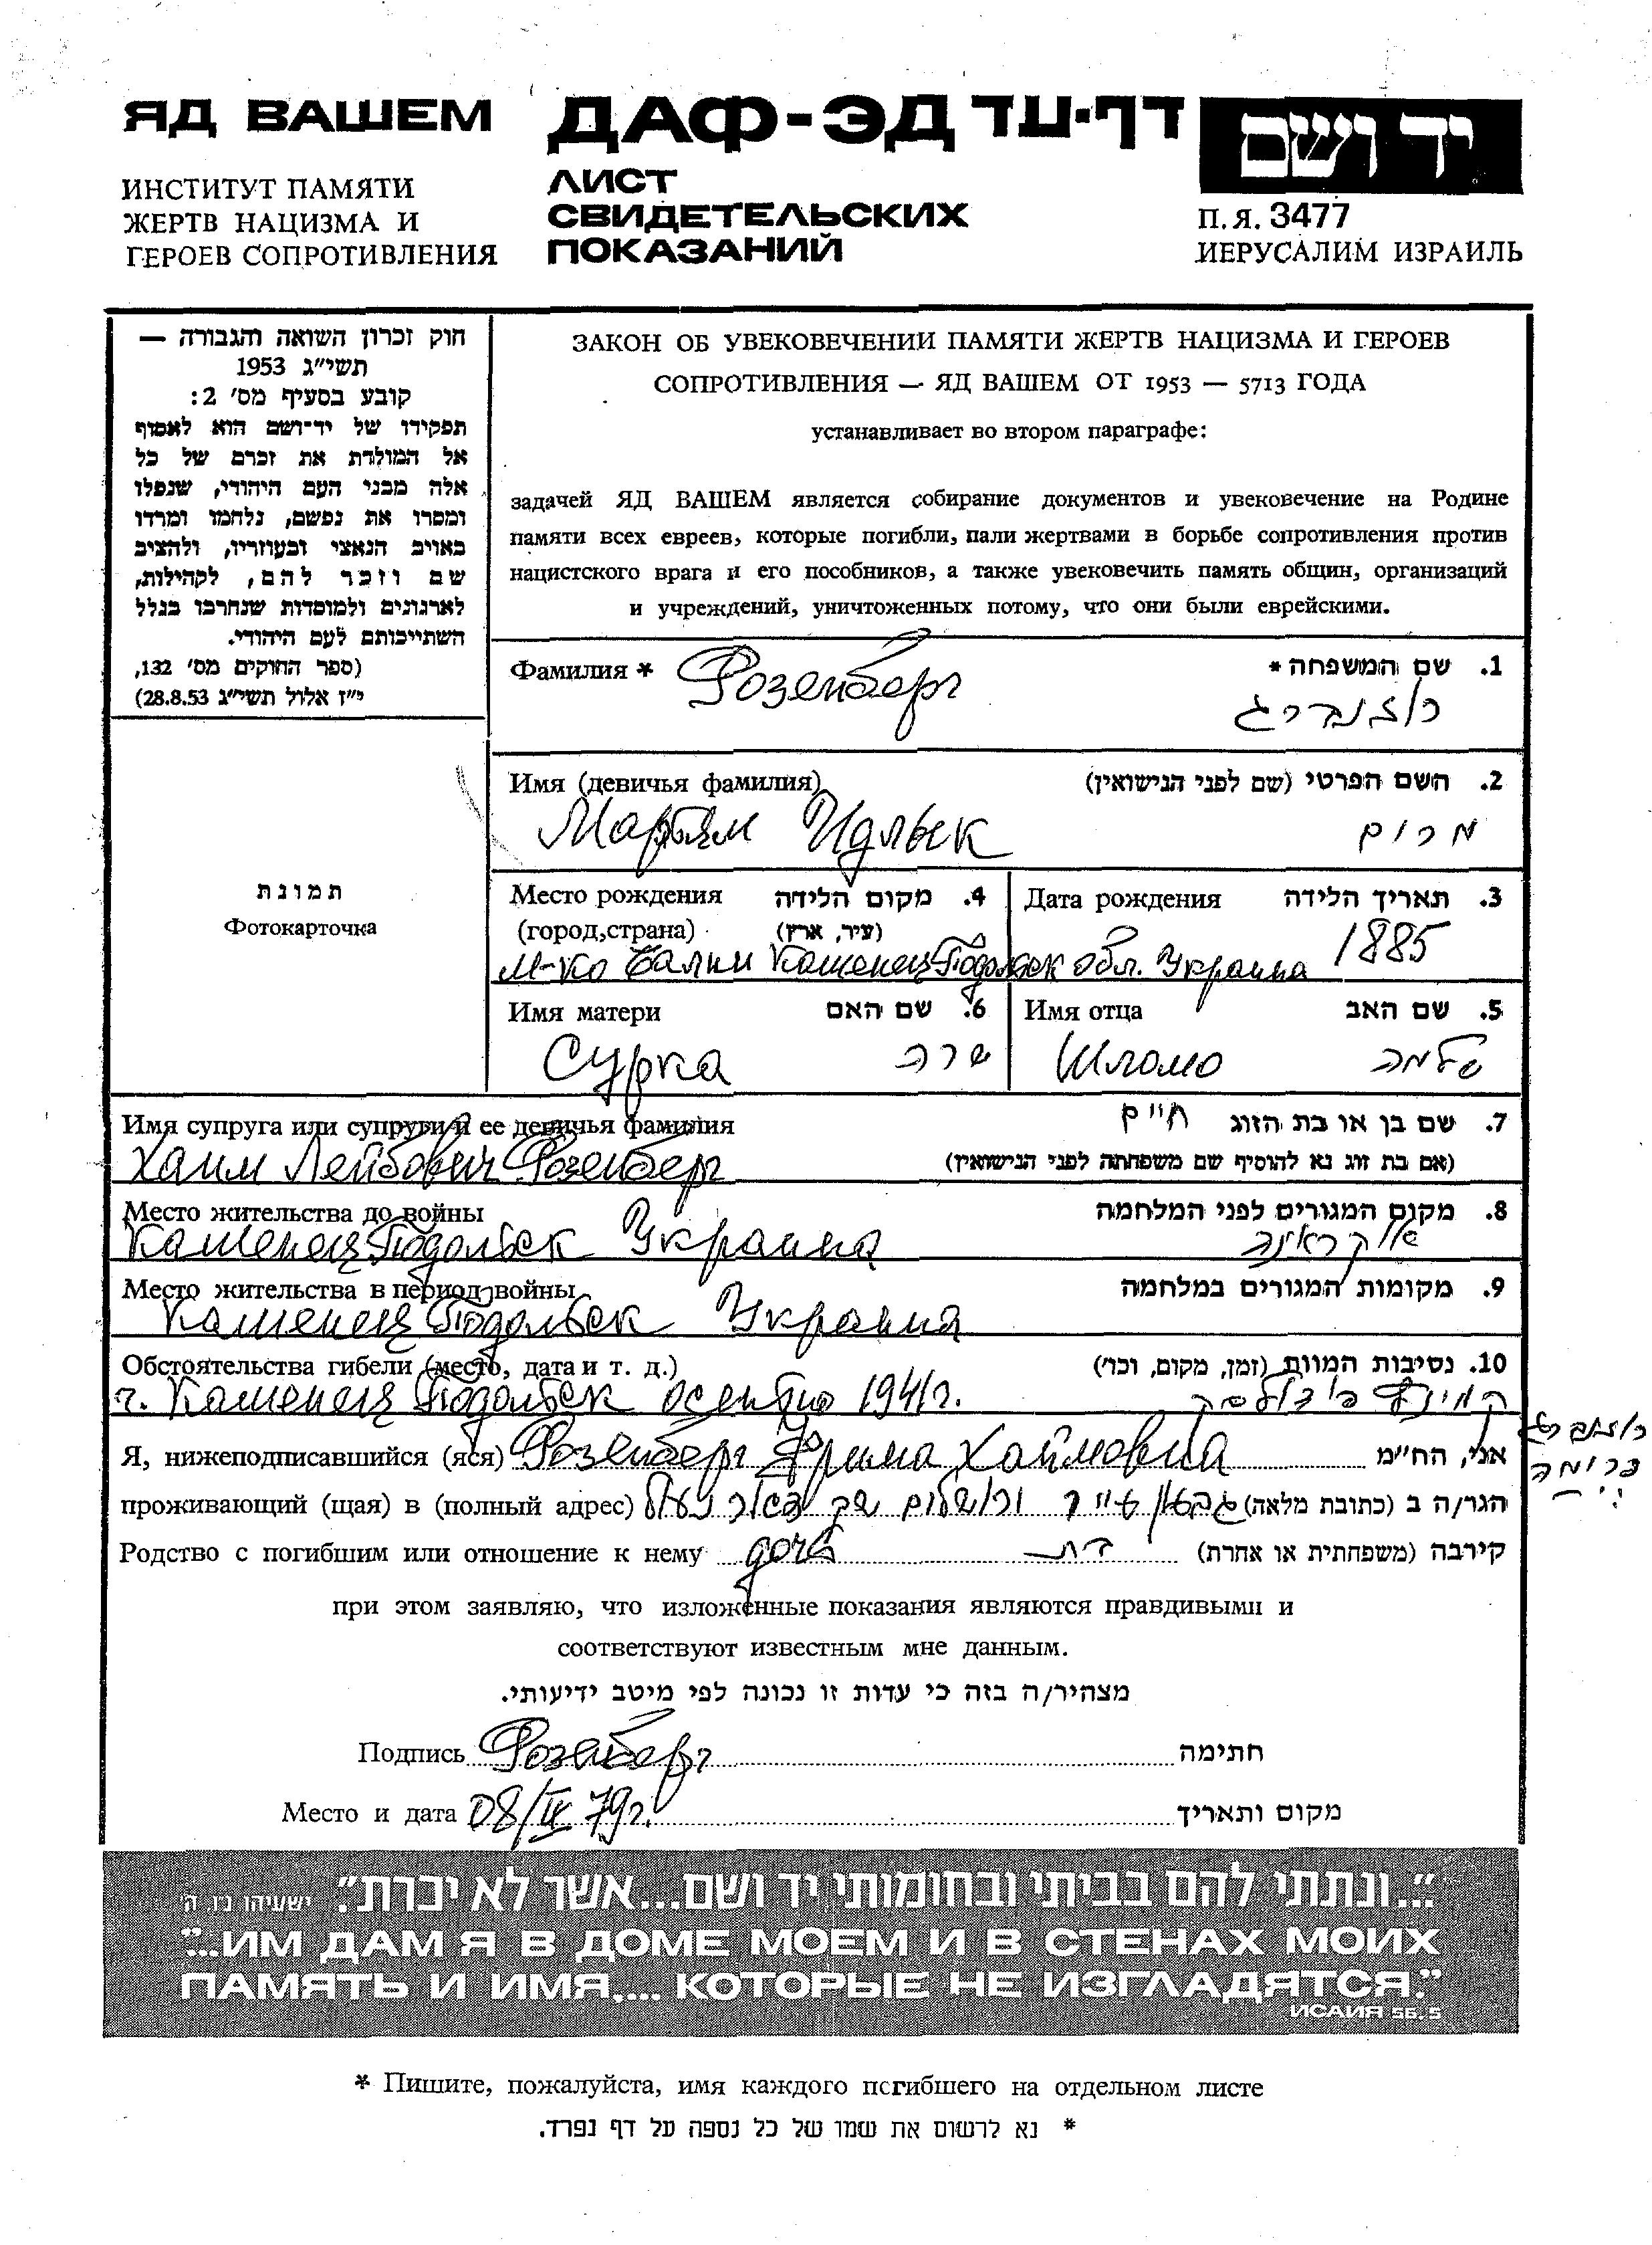 ЯД ВАШЕМ
ИНСТИТУТ ПАМЯТИ
ЖЕРТВ НАЦИЗМА И
ГЕРОЕВ СОПРОТИВЛЕНИЯ
ДАФ-ЭД דף-עד
ЛИСТ
СВИДЕТЕЛЬСКИХ
ПОКАЗАНИЙ
יד ושם
П.Я. 3477
ИЕРУСАЛИМ ИЗРАИЛЬ
חוק זכרון השואה והגבורה —
תשי״ג 1953
קובע בסעיף מס׳ 2:
תפקידו של יד־ושם הוא לאסוף
אל המולדת את זכרם של כל
אלה מבני העם היהודי, שנפלו
ומסרו את נפשם, נלחמו ומרדו
באויב הנאצי ובעוזריו, ולהציב
שם וזכר להם, לקהילות,
לארגונים ולמוסדות שנחרבו בגלל
השתייכותם לעם היהודי.
(ספר החוקים מס׳ 132,
י״ז אלול תשי״ג 28.8.53)
ЗАКОН ОБ УВЕКОВЕЧЕНИИ ПАМЯТИ ЖЕРТВ НАЦИЗМА И ГЕРОЕВ
СОПРОТИВЛЕНИЯ — ЯД ВАШЕМ ОТ 1953 — 5713 ГОДА
устанавливает во втором параграфе:
задачей ЯД ВАШЕМ является собирание документов и увековечение на Родине
памяти всех евреев, которые погибли, пали жертвами в борьбе сопротивления против
нацистского врага и его пособников, а также увековечить память общин, организаций
и учреждений, уничтоженных потому, что они были еврейскими.
Фамилия * Розенберг 1. שם המשפחה *
רוזנברג
Имя (девичья фамилия) 2. השם הפרטי (שם לפני הנישואין)
Марьям Идлык מרים
תמונת
Фотокарточка
Место рождения 4. מקום הלידה Дата рождения 3. תאריך הלידה
(город,страна) (עיר, ארץ) 1885
м-ко Балин Каменец Подольск обл. Украина
Имя матери 6. שם האם Имя отца 5. שם האב
Сурка שרה Шломо שלמה
Имя супруга или супруги и ее девичья фамилия 7. שם בן או בת הזוג חיים
Хаим Лейбович Розенберг (אם בת זוג נא להוסיף שם משפחתה לפני הנישואין)
Место жительства до войны 8. מקום המגורים לפני המלחמה
Каменец Подольск Украина אוקראינה
Место жительства в период войны 9. מקומות המגורים במלחמה
Каменец Подольск Украина
Обстоятельства гибели (место, дата и т. д.) 10. נסיבות המוות (זמן, מקום, וכו׳)
г. Каменец Подольск осенью 1941г.
Я, нижеподписавшийся (яся) Розенберг Фрима Хаймовна אני, החי״מ
רוזנברג
פרימה
проживающий (щая) в (полный адрес) הגר/ה ב (כתובת מלאה)
Родство с погибшим или отношение к нему дочь בת קירבה (משפחתית או אחרת)
при этом заявляю, что изложенные показания являются правдивыми и
соответствуют известным мне данным.
מצהיר/ה בזה כי עדות זו נכונה לפי מיטב ידיעותי.
Подпись Розенберг חתימה
Место и дата 08/IX 79г. מקום ותאריך
״...ונתתי להם בביתי ובחומותי יד ושם...אשר לא יכרת״. ישעיהו נ״ו, ה׳
"...ИМ ДАМ Я В ДОМЕ МОЕМ И В СТЕНАХ МОИХ
ПАМЯТЬ И ИМЯ.... КОТОРЫЕ НЕ ИЗГЛАДЯТСЯ."
ИСАИЯ 56,5
* Пишите, пожалуйста, имя каждого погибшего на отдельном листе
* נא לרשום את שמו של כל נספה על דף נפרד.